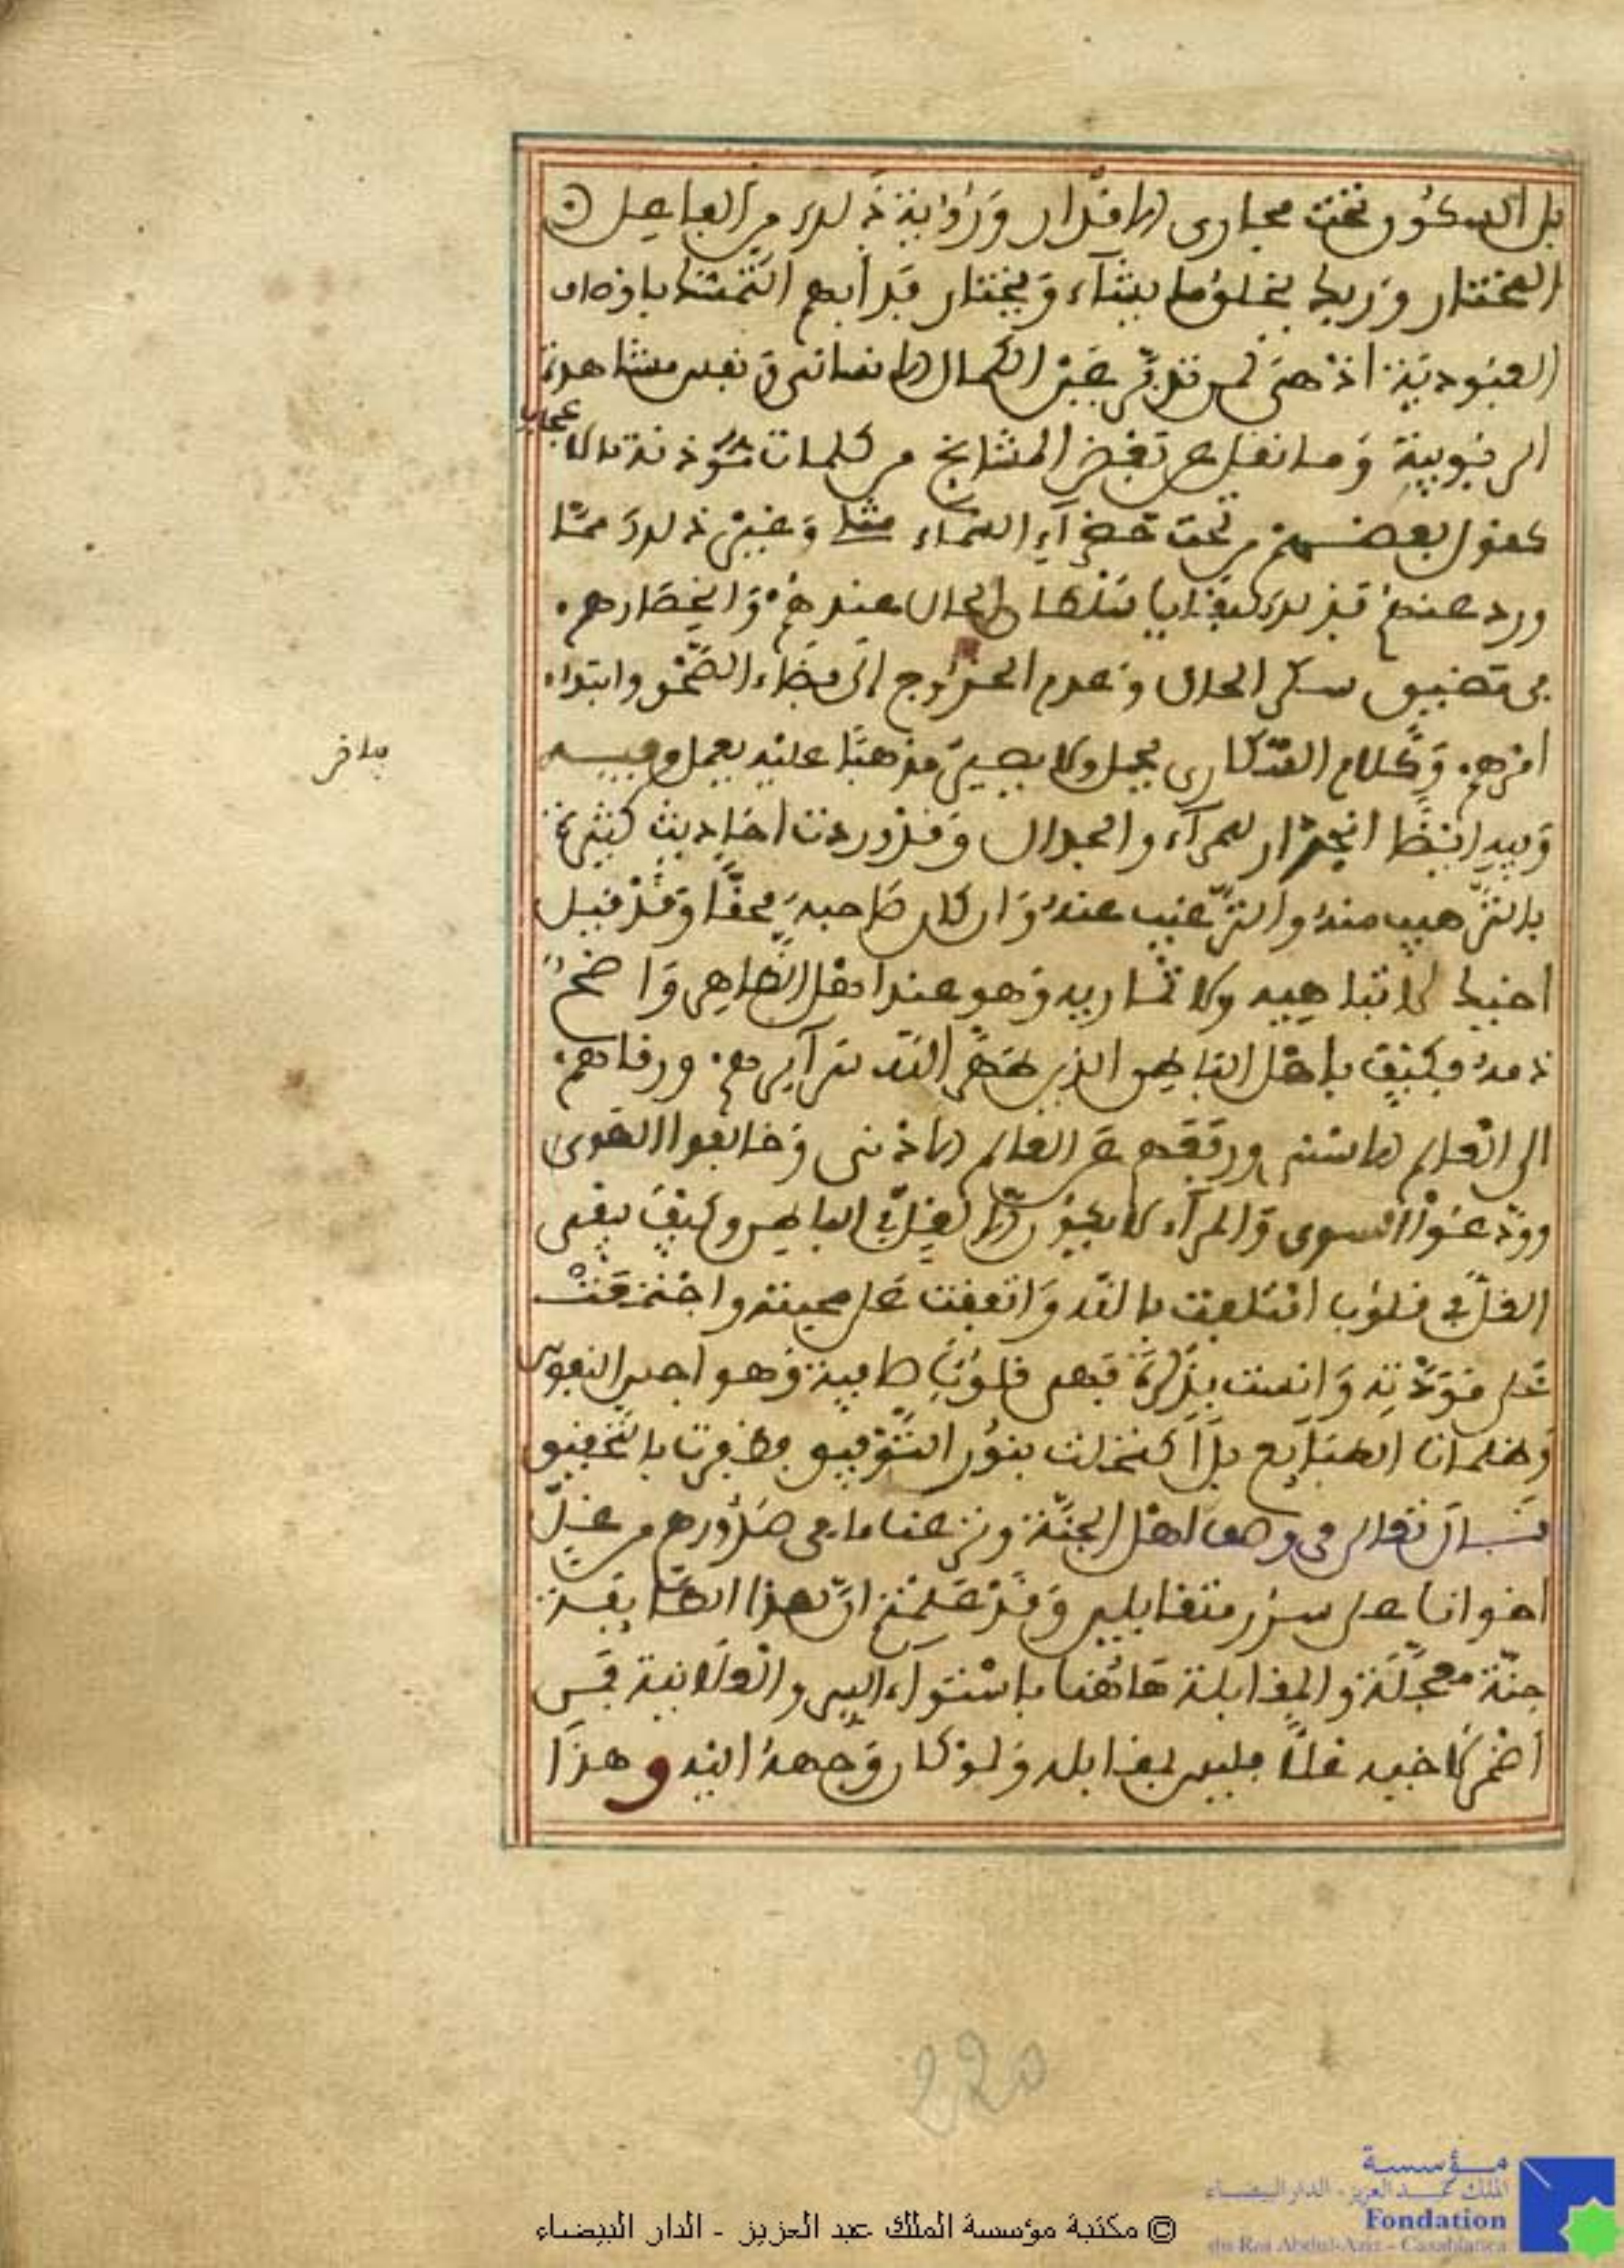 بل السكون تحت مجاري الاقدار ورؤية ذلك من الفاعل
المختار وربك يخلق ما يشاء ويختار فدأبهم التمسك باوصاف
العبودية اذ هي لمن تدبر عين الكمال الانساني ونفس مشاهدة
الربوبية وما نقل عن بعض المشايخ من كلمات مؤذنة بالاعجاب
كقول بعضهم من تحت خضراء السماء مثلي وغير ذلك مما
ورد عنهم فذلك لبقايا سلطان الحال عندهم وانحصارهم
في مضيق سكر الحال وعدم الخروج الى فضاء الصحو وابتداء
امرهم وكلام السكارى يحمل ولا يصير مذهبا عليه يعمل وفيه
وفيه ايضا انجرار للمراء والجدال وقد وردت احاديث كثيرة
بالترهيب منه والترغيب عنه وان كان صاحبه محقا وقد قيل
اخيك لا تباهيه ولا تماريه وهو عند اهل الظاهر واضح
ذمه فكيف باهل الباطن الذين طهر الله سرائرهم ورقاهم
الى العالم الاسنى ورفعهم عن العالم الادنى وخالفوا الهوى
وودعوا السوى والمراء لا يكون الا لغل في الباطن وكيف يبقى
الغل في قلوب ائتلفت بالله واتفقت على محبته واجتمعت
على مودته وانست بذكره فهي قلوب صافية من هواجس النفوس
وظلمات الطبايع بل اكتحلت بنور التوفيق وظفرت بالتحقيق
قال تعالى في وصف اهل الجنة ونزعنا ما في صدورهم من غل
اخوانا على سرر متقابلين وقد علمتم ان لهذه الطايفة
جنة معجلة والمقابلة هاهنا باستواء السر والعلانية فمن
اضمر لاخيه غلا فليس بمقابله ولو كان وجهه اليه وهذا
220
© مكتبة مؤسسة الملك عبد العزيز - الدار البيضاء
مؤسسة
الملك عبد العزيز - الدار البيضاء
Fondation
du Roi Abdul-Aziz - Casablanca